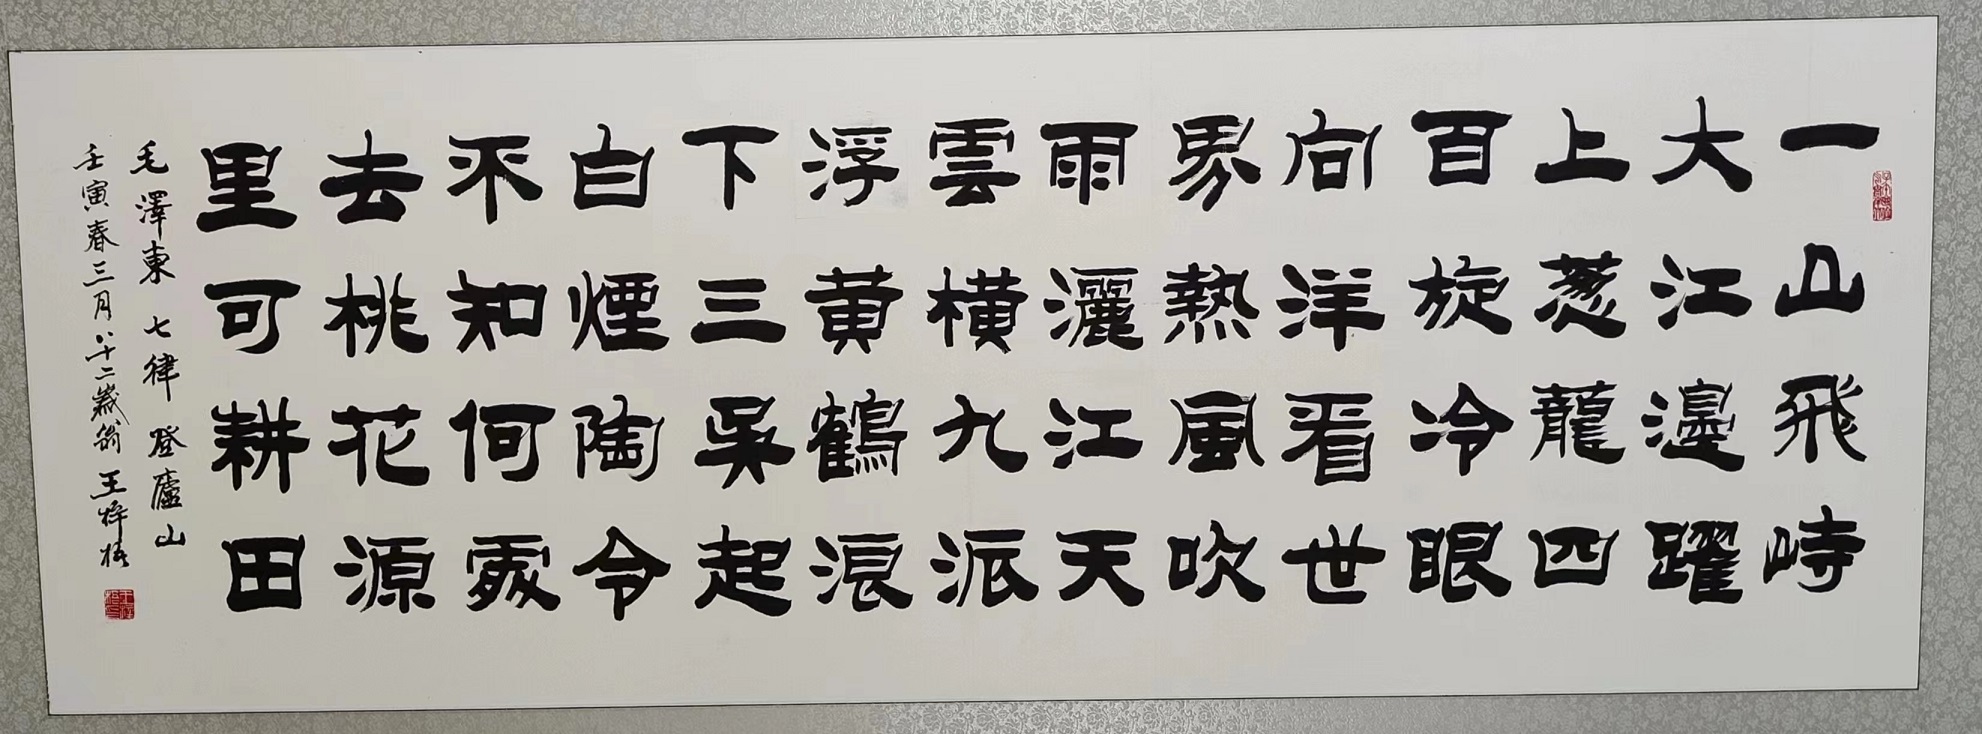 一山飛峙
大江邊躍
上葱龍四
百旋冷眼
向洋看世
界熱風吹
雨灑江天
雲横九派
浮黄鶴浪
下三吳起
白煙陶令
不知何處
去桃花源
里可耕田
毛澤東 七律 登廬山
壬寅春三月八十二歲翁 王梓